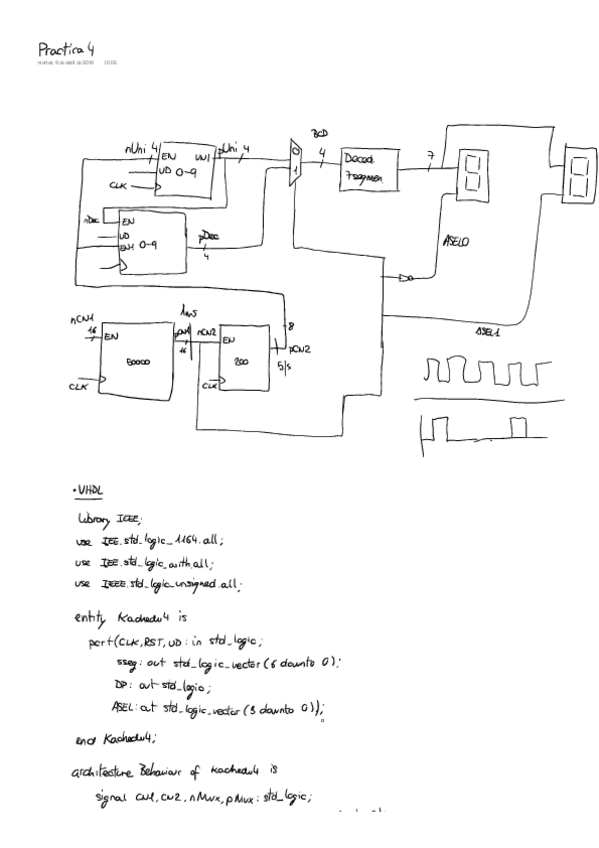 Practica 4
martes, 9 de abril de 2019 10:06
nUni 4
EN
UNI
pUni 4
UD 0-9
CLK
BCD
4
0
1
Decod.
7segmen.
7
nDec
EN
UD
EN1 0-9
pDec
4
ASEL0
ASEL1
1ms
nCN1
16
EN
50000
CLK
pCN1
16
nCN2
EN
200
CLK
8
pCN2
5/s
• VHDL
Library IEEE;
use IEE.std_logic_1164.all;
use IEE.std_logic_arith.all;
use IEEE.std_logic_unsigned.all;
entity Kachedu4 is
port(CLK,RST,UD: in std_logic;
sseg: out std_logic_vector(6 downto 0);
DP: out std_logic;
ASEL: out std_logic_vector(3 downto 0));
end Kachedu4;
architecture Behaviour of Kachedu4 is
signal CN1, CN2, nMux, pMux: std_logic;